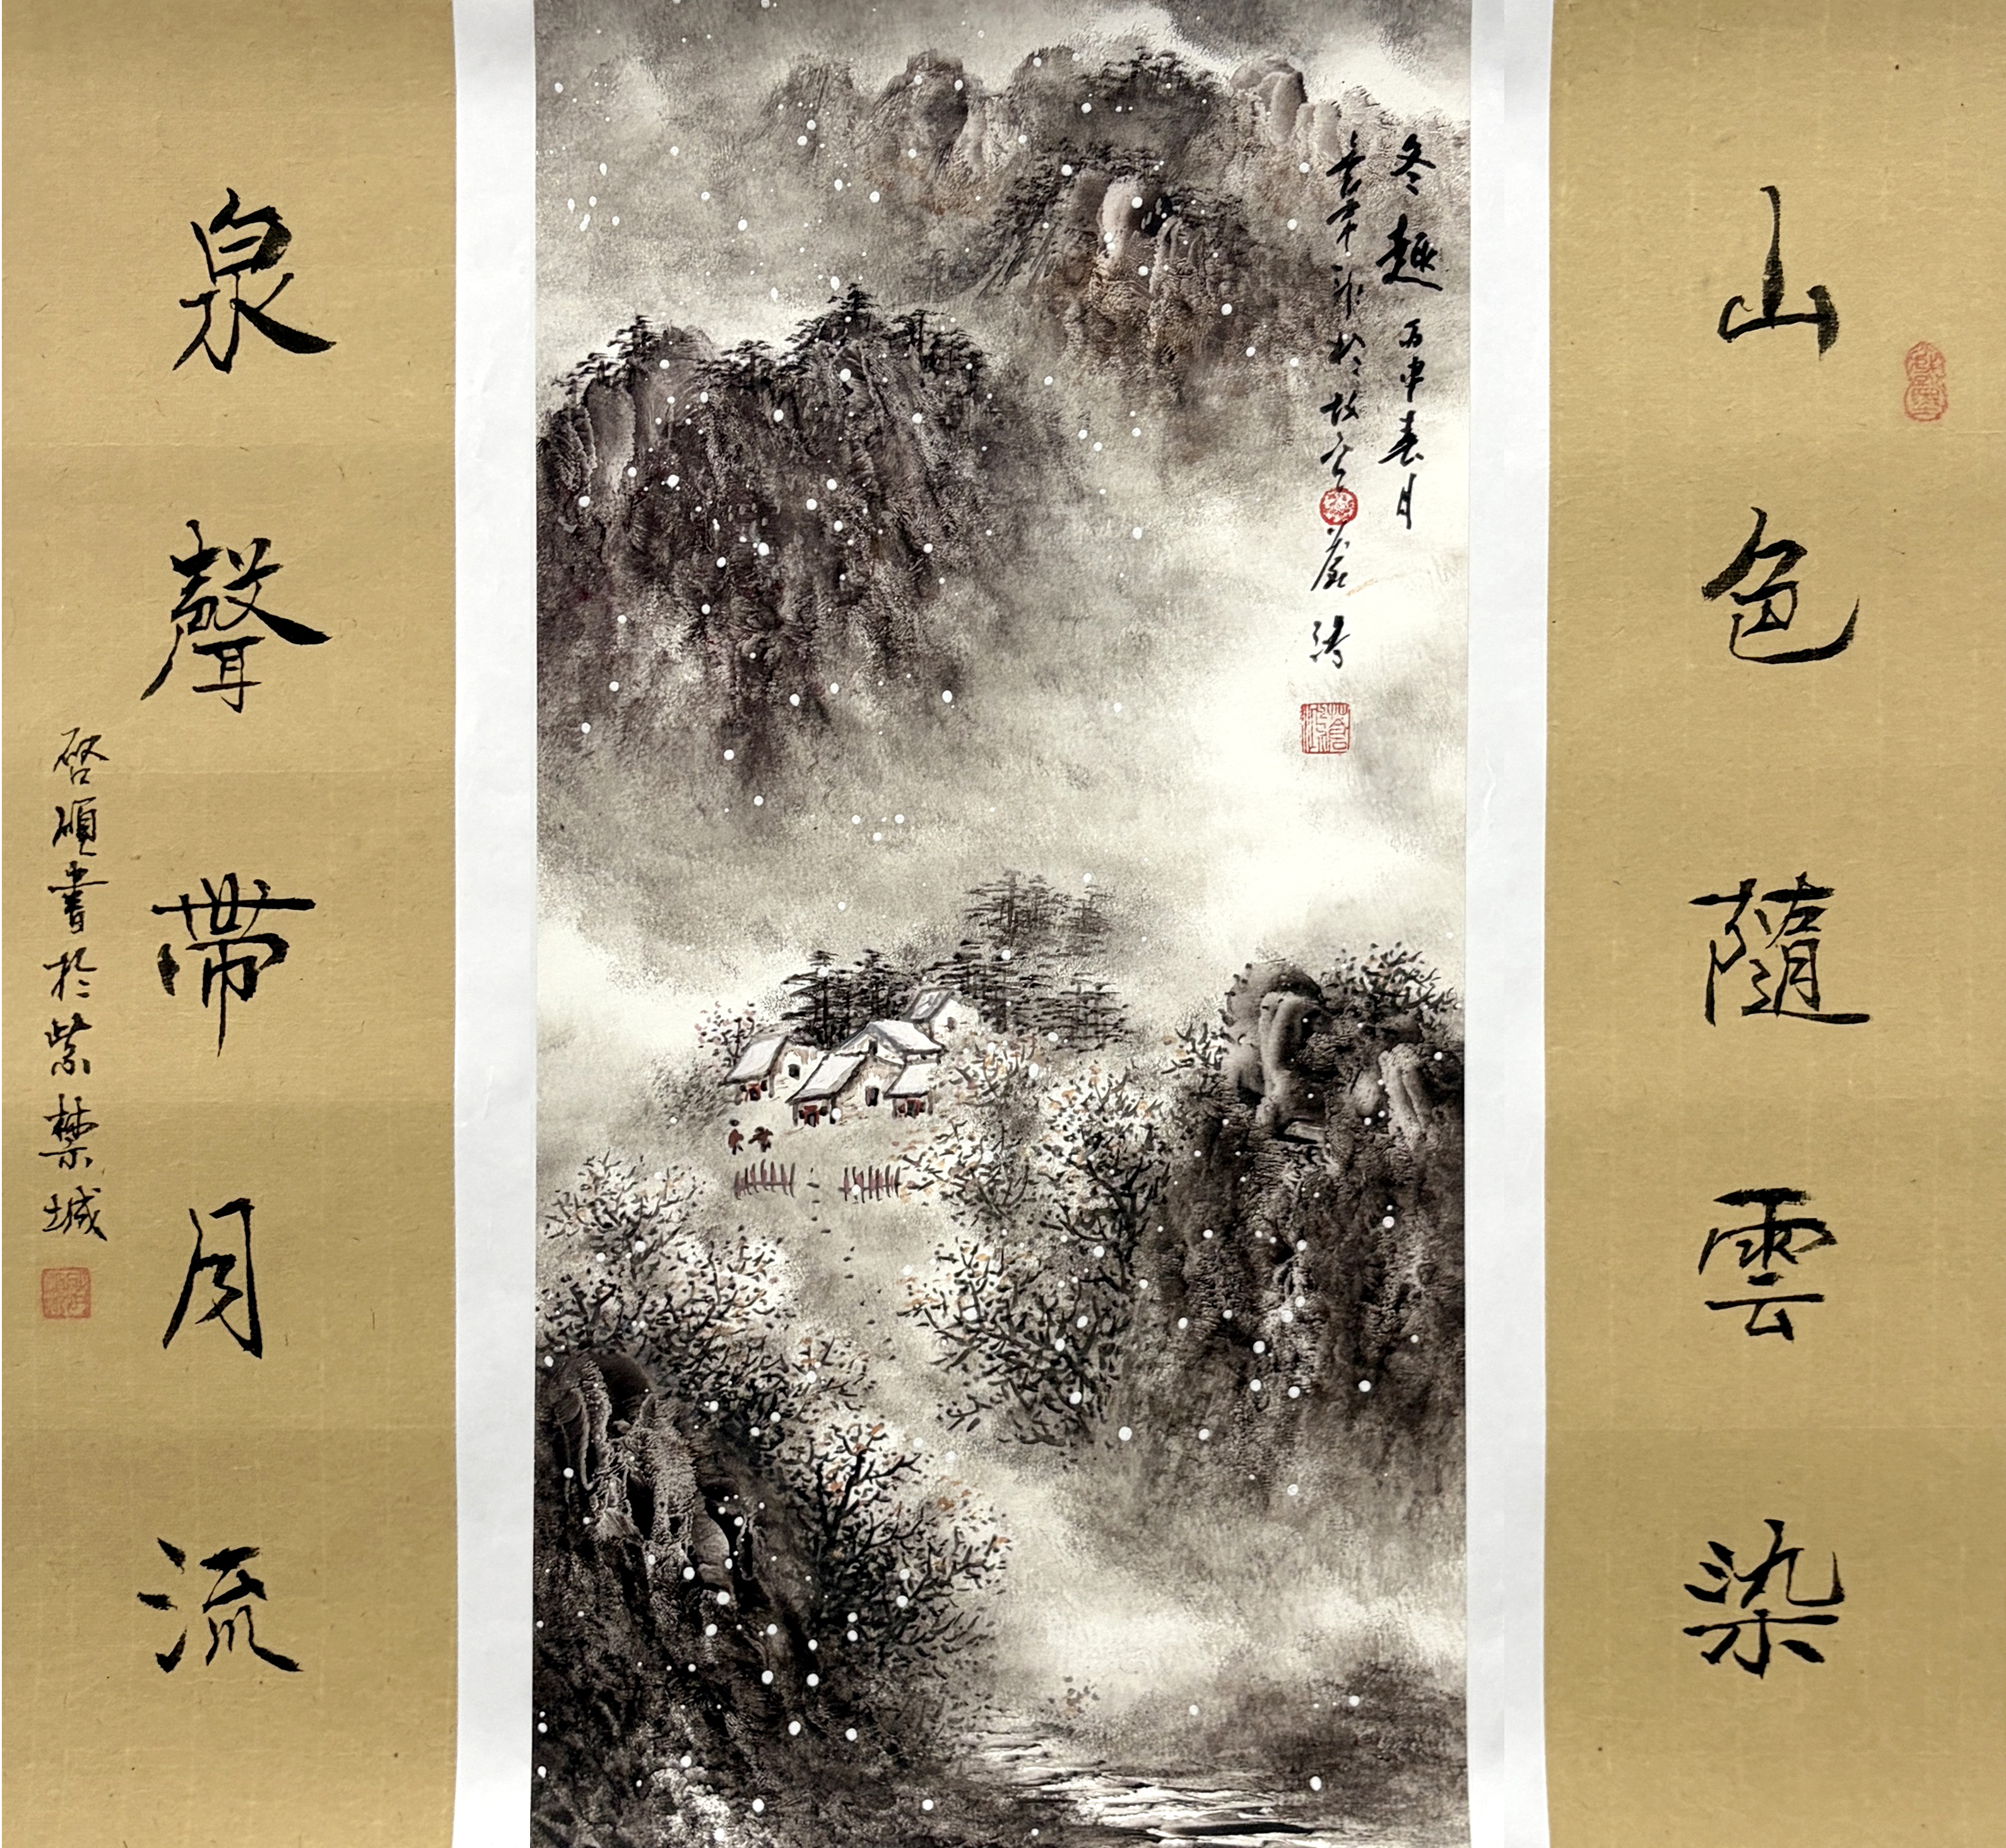 山色隨雲染
冬趣 丙申春月
於故宮
泉聲帶月流
啓順書於紫禁城